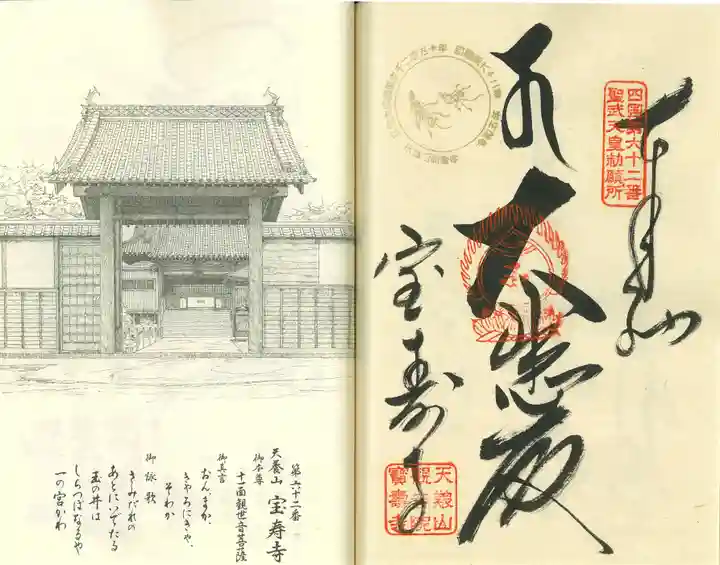 四国第六十二番
聖武天皇勅願所
大悲殿
宝寿寺
天養山
観音院
寶壽寺
第六十二番
天養山 宝寿寺
御本尊
十一面観世音菩薩
御真言
おん、まか、
きやろにきや、
そわか
御詠歌
さみだれの
あとにいでたる
玉の井は
しらつぼなるや
一の宮かわ